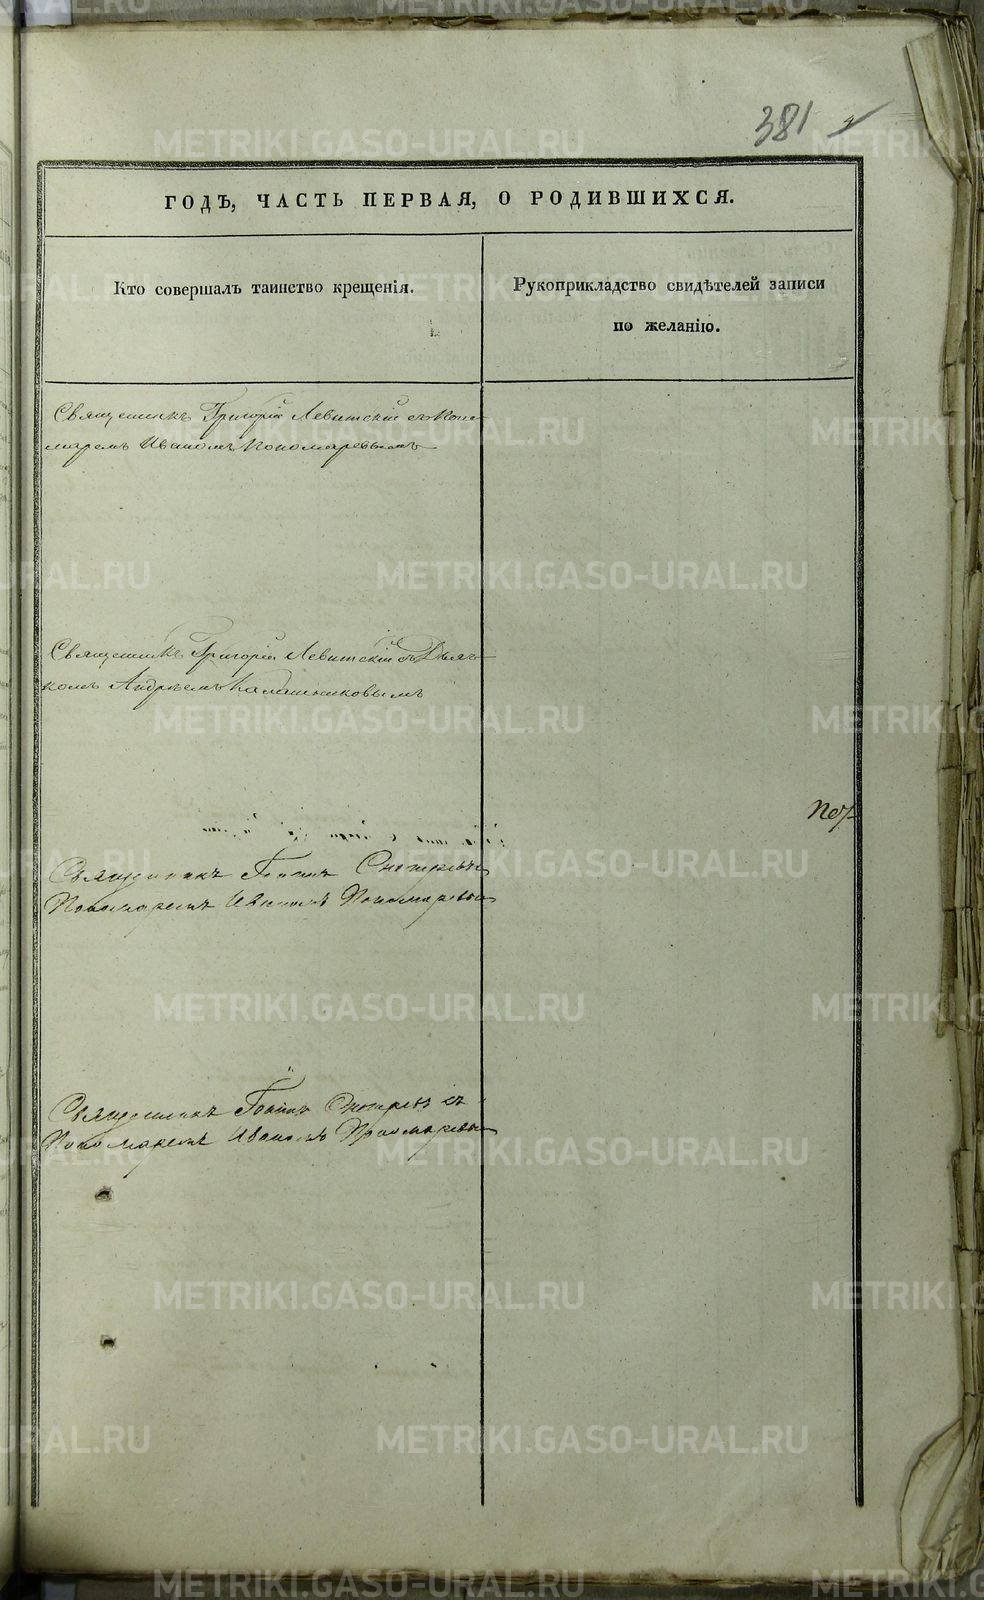 381
ГОДЪ, ЧАСТЬ ПЕРВАЯ, О РОДИВШИХСЯ.
Кто совершалъ таинство крещенія.
Рукоприкладство свидѣтелей записи
по желанію.
Священникъ Григорій Левитскій съ Поно-
маремъ Иваномъ Пономаревымъ
Священникъ Григорій Левитскій съ Дьяч-
комъ Андреемъ Калашниковымъ
Священникъ Іоаннъ
Пономаремъ Иваномъ Пономаревым
Священникъ Іоаннъ съ
Пономаремъ Иваномъ Пономаревым
METRIKI.GASO-URAL.RU